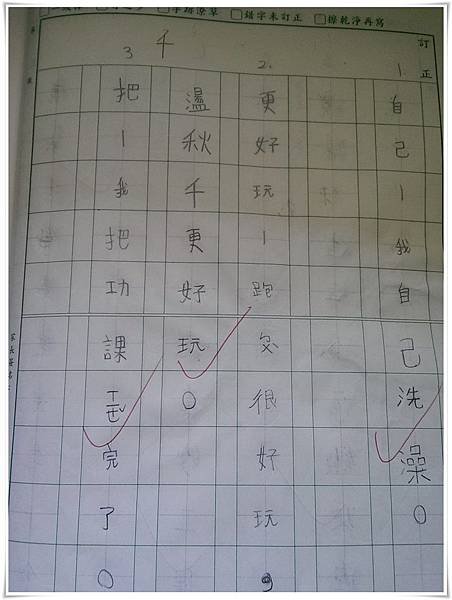 字跡潦草 □錯字未訂正 □擦乾淨再寫
訂正
1. 自己—我自己洗澡。
2. 更好玩—跑很好玩，
盪秋千更好玩。
千
3. 把—我把功課完了。
家長簽名：